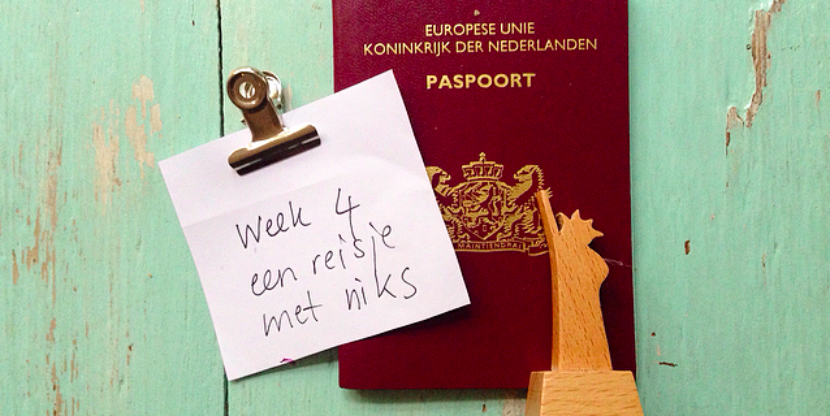 EUROPESE UNIE
KONINKRIJK DER NEDERLANDEN
PASPOORT
MAINTIENDRAI
Week 4
een reisje
met niks